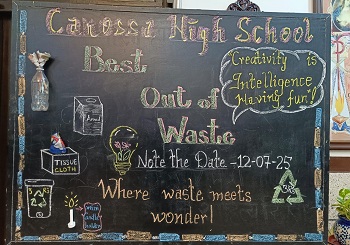 Canossa High School
Best
Out of
Waste
Creativity is
Intelligence
Having fun!
TISSUE
CLOTH
Note the Date - 12-07-25
Where waste meets
wonder!